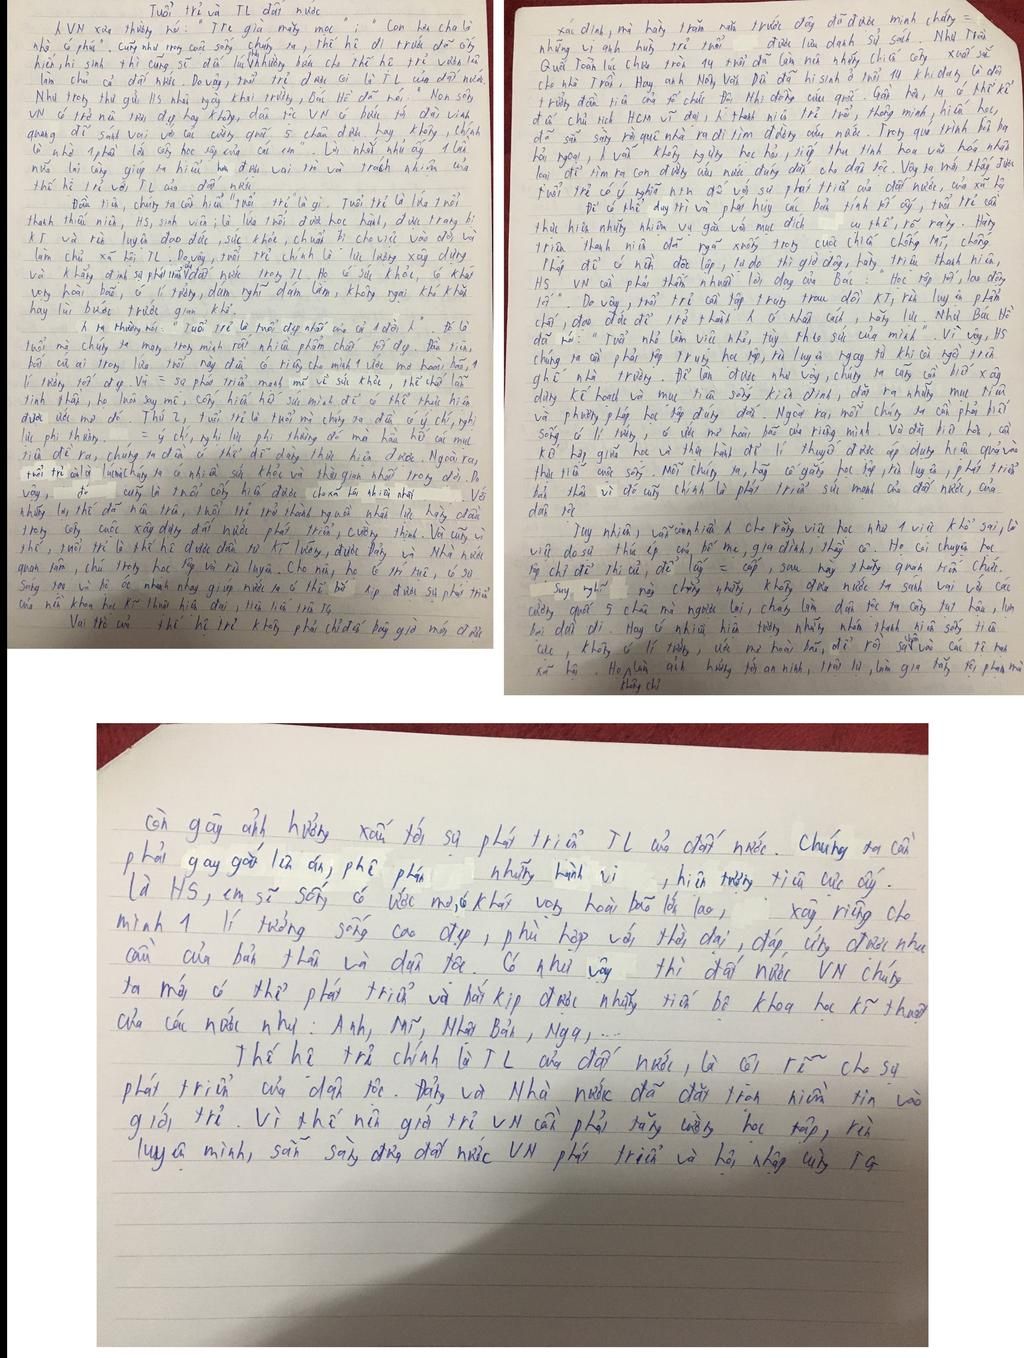 Tuổi trẻ và TL đất nước
VN xưa thường nói: "Tre già măng mọc"; "Con hơn cha là
nhà có phúc". Cũng như trong cuộc sống chúng ta, thế hệ đi trước đã cống
hiến, hi sinh thì cũng sẽ đến lúc nhường bước cho thế hệ trẻ vươn lên
làm chủ cả đất nước. Do vậy, tuổi trẻ được coi là TL của đất nước.
Như trong thư gửi HS nhân ngày khai trường, Bác Hồ đã nói: "Non sông
VN có trở nên tươi đẹp hay không, dân tộc VN có bước tới đài vinh
quang để sánh vai với các cường quốc 5 châu được hay không, chính
là nhờ 1 phần lớn công học tập của các em". Lời nhắn nhủ ấy 1 lần
nữa lại càng giúp ta hiểu được vai trò và trách nhiệm của
thế hệ trẻ với TL của đất nước.
Đầu tiên, chúng ta cần hiểu "tuổi trẻ" là gì. Tuổi trẻ là lứa tuổi
thanh thiếu niên, HS, sinh viên; là lứa tuổi được học hành, được trang bị
KT và rèn luyện đạo đức, sức khỏe, chuẩn bị cho việc vào đời và
làm chủ xã hội TL. Do vậy, tuổi trẻ chính là lực lượng xây dựng
và khẳng định sự phát triển đất nước trong TL. Họ có sức khỏe, có khát
vọng hoài bão, có lí tưởng, dám nghĩ dám làm, không ngại khó khăn
hay lùi bước trước gian khổ.
ta thường nói: "Tuổi trẻ là tuổi đẹp nhất của cả 1 đời". Đó là
tuổi mà chúng ta mang trong mình rất nhiều phẩm chất tốt đẹp. Đầu tiên,
bất cứ ai trong lứa tuổi này đều có riêng cho mình 1 ước mơ hoài bão, 1
lí tưởng tốt đẹp. Và = sự phát triển mạnh mẽ về sức khỏe, thể chất lẫn
tinh thần, họ luôn say mê, cống hiến hết sức mình để có thể thực hiện
được ước mơ đó. Thứ 2, tuổi trẻ là tuổi mà chúng ta đều có ý chí, nghị
lực phi thường. = ý chí, nghị lực phi thường đó mà hầu hết các mục
tiêu đề ra, chúng ta đều có thể dễ dàng thực hiện được. Ngoài ra,
tuổi trẻ còn là lúc mà chúng ta có nhiều sức khỏe và thời gian nhất trong đời. Do
vậy, đó cũng là tuổi cống hiến được cho xã hội nhiều nhất. Với
những lợi thế đã nêu trên, tuổi trẻ trở thành nguồn nhân lực hàng đầu
trong công cuộc xây dựng đất nước phát triển, cường thịnh. Và cũng vì
thế, tuổi trẻ là thế hệ được đầu tư kĩ lưỡng, được Đảng và Nhà nước
quan tâm, chú trọng học tập và rèn luyện. Cho nên, họ có trí tuệ, có sự
sáng tạo và bộ óc nhanh nhạy giúp nước ta có thể bắt kịp được sự phát triển
của nền khoa học kĩ thuật hiện đại, tiên tiến trên TG.
Vai trò của thế hệ trẻ không phải chỉ đến bây giờ mới được
xác định, mà hàng trăm năm trước đây đã được minh chứng =
những vị anh hùng trẻ tuổi được lưu danh sử sách. Như Trần
Quốc Toản lúc chưa tròn 14 tuổi đã làm nên những chiến công xuất sắc
cho nhà Trần. Hay anh Nông Văn Dền đã hi sinh ở tuổi 14 khi đang là đội
trưởng đầu tiên của tổ chức Đội Nhi đồng cứu quốc. Gần hơn, ta có thể kể
đến chủ tịch HCM vĩ đại, thanh niên trẻ tuổi, thông minh, hiếu học,
đã sẵn sàng rời quê nhà ra đi tìm đường cứu nước. Trong quá trình bôn ba
hải ngoại, vẫn không ngừng học hỏi, tiếp thu tinh hoa văn hóa nhân
loại để tìm ra con đường cứu nước đúng đắn cho dân tộc. Vậy ta mới thấy được
tuổi trẻ có ý nghĩa ntn đối với sự phát triển của đất nước, của xã hội
Để có thể duy trì và phát huy các bản tính tốt ấy, tuổi trẻ cần
thực hiện những nhiệm vụ gắn với mục đích cụ thể, rõ ràng. Hàng
triệu thanh niên đã ngã xuống trong cuộc chiến chống Mĩ, chống
Pháp để có nền độc lập, tự do thì giờ đây, hàng triệu thanh niên,
HS VN cần phải thấm nhuần lời dạy của Bác: "Học tập tốt, lao động
tốt". Do vậy, tuổi trẻ cần tập trung trau dồi KT, rèn luyện phẩm
chất, đạo đức để trở thành có nhân cách, năng lực. Như Bác Hồ
đã nói: "Tuổi nhỏ làm việc nhỏ, tùy theo sức của mình". Vì vậy, HS
chúng ta cần phải tập trung học tập, rèn luyện ngay từ khi còn ngồi trên
ghế nhà trường. Để làm được như vậy, chúng ta cũng cần biết xây
dựng kế hoạch và mục tiêu sống kiên định, đặt ra những mục tiêu
và phương pháp học tập đúng đắn. Ngoài ra, mỗi chúng ta cần phải biết
sống có lí tưởng, có ước mơ hoài bão của riêng mình. Và đặc biệt hơn, cần
kết hợp giữa học và thực hành để lí thuyết được áp dụng hiệu quả vào
thực tiễn cuộc sống. Mỗi chúng ta, hãy cố gắng học tập, rèn luyện, phát triển
bản thân vì đó cũng chính là phát triển sức mạnh của đất nước, của
dân tộc
Tuy nhiên, vẫn còn nhiều cho rằng việc học như 1 việc khổ sai, là
việc do sự thúc ép của bố mẹ, gia đình, thầy cô. Họ coi chuyện học
tập chỉ để thi cử, để lấy = cấp, sau này thăng quan tiến chức.
Suy nghĩ này chẳng những không đưa nước ta sánh vai với các
cường quốc 5 châu mà ngược lại, chúng làm dân tộc ta càng tụt hậu, lùn
bại dần đi. Hay có nhiều hiện tượng những nhóm thanh niên sống tiêu
cực, không có lí tưởng, ước mơ hoài bão, để rồi sa vào các tệ nạn
xã hội. Họ không chỉ làm ảnh hưởng tới an ninh, trật tự, làm gia tăng tội phạm mà
còn gây ảnh hưởng xấu tới sự phát triển TL của đất nước. Chúng ta cần
phải gay gắt lên án, phê phán những hành vi, hiện tượng tiêu cực ấy.
Là HS, em sẽ sống có ước mơ, có khát vọng hoài bão lớn lao, xây riêng cho
mình 1 lí tưởng sống cao đẹp, phù hợp với thời đại, đáp ứng được nhu
cầu của bản thân và dân tộc. Có như vậy thì đất nước VN chúng
ta mới có thể phát triển và bắt kịp được những tiến bộ khoa học kĩ thuật
của các nước như: Anh, Mĩ, Nhật Bản, Nga,...
Thế hệ trẻ chính là TL của đất nước, là cội rễ cho sự
phát triển của dân tộc. Đảng và Nhà nước đã đặt trọn niềm tin vào
giới trẻ. Vì thế nên giới trẻ VN cần phải tăng cường học tập, rèn
luyện mình, sẵn sàng đưa đất nước VN phát triển và hội nhập cùng TG